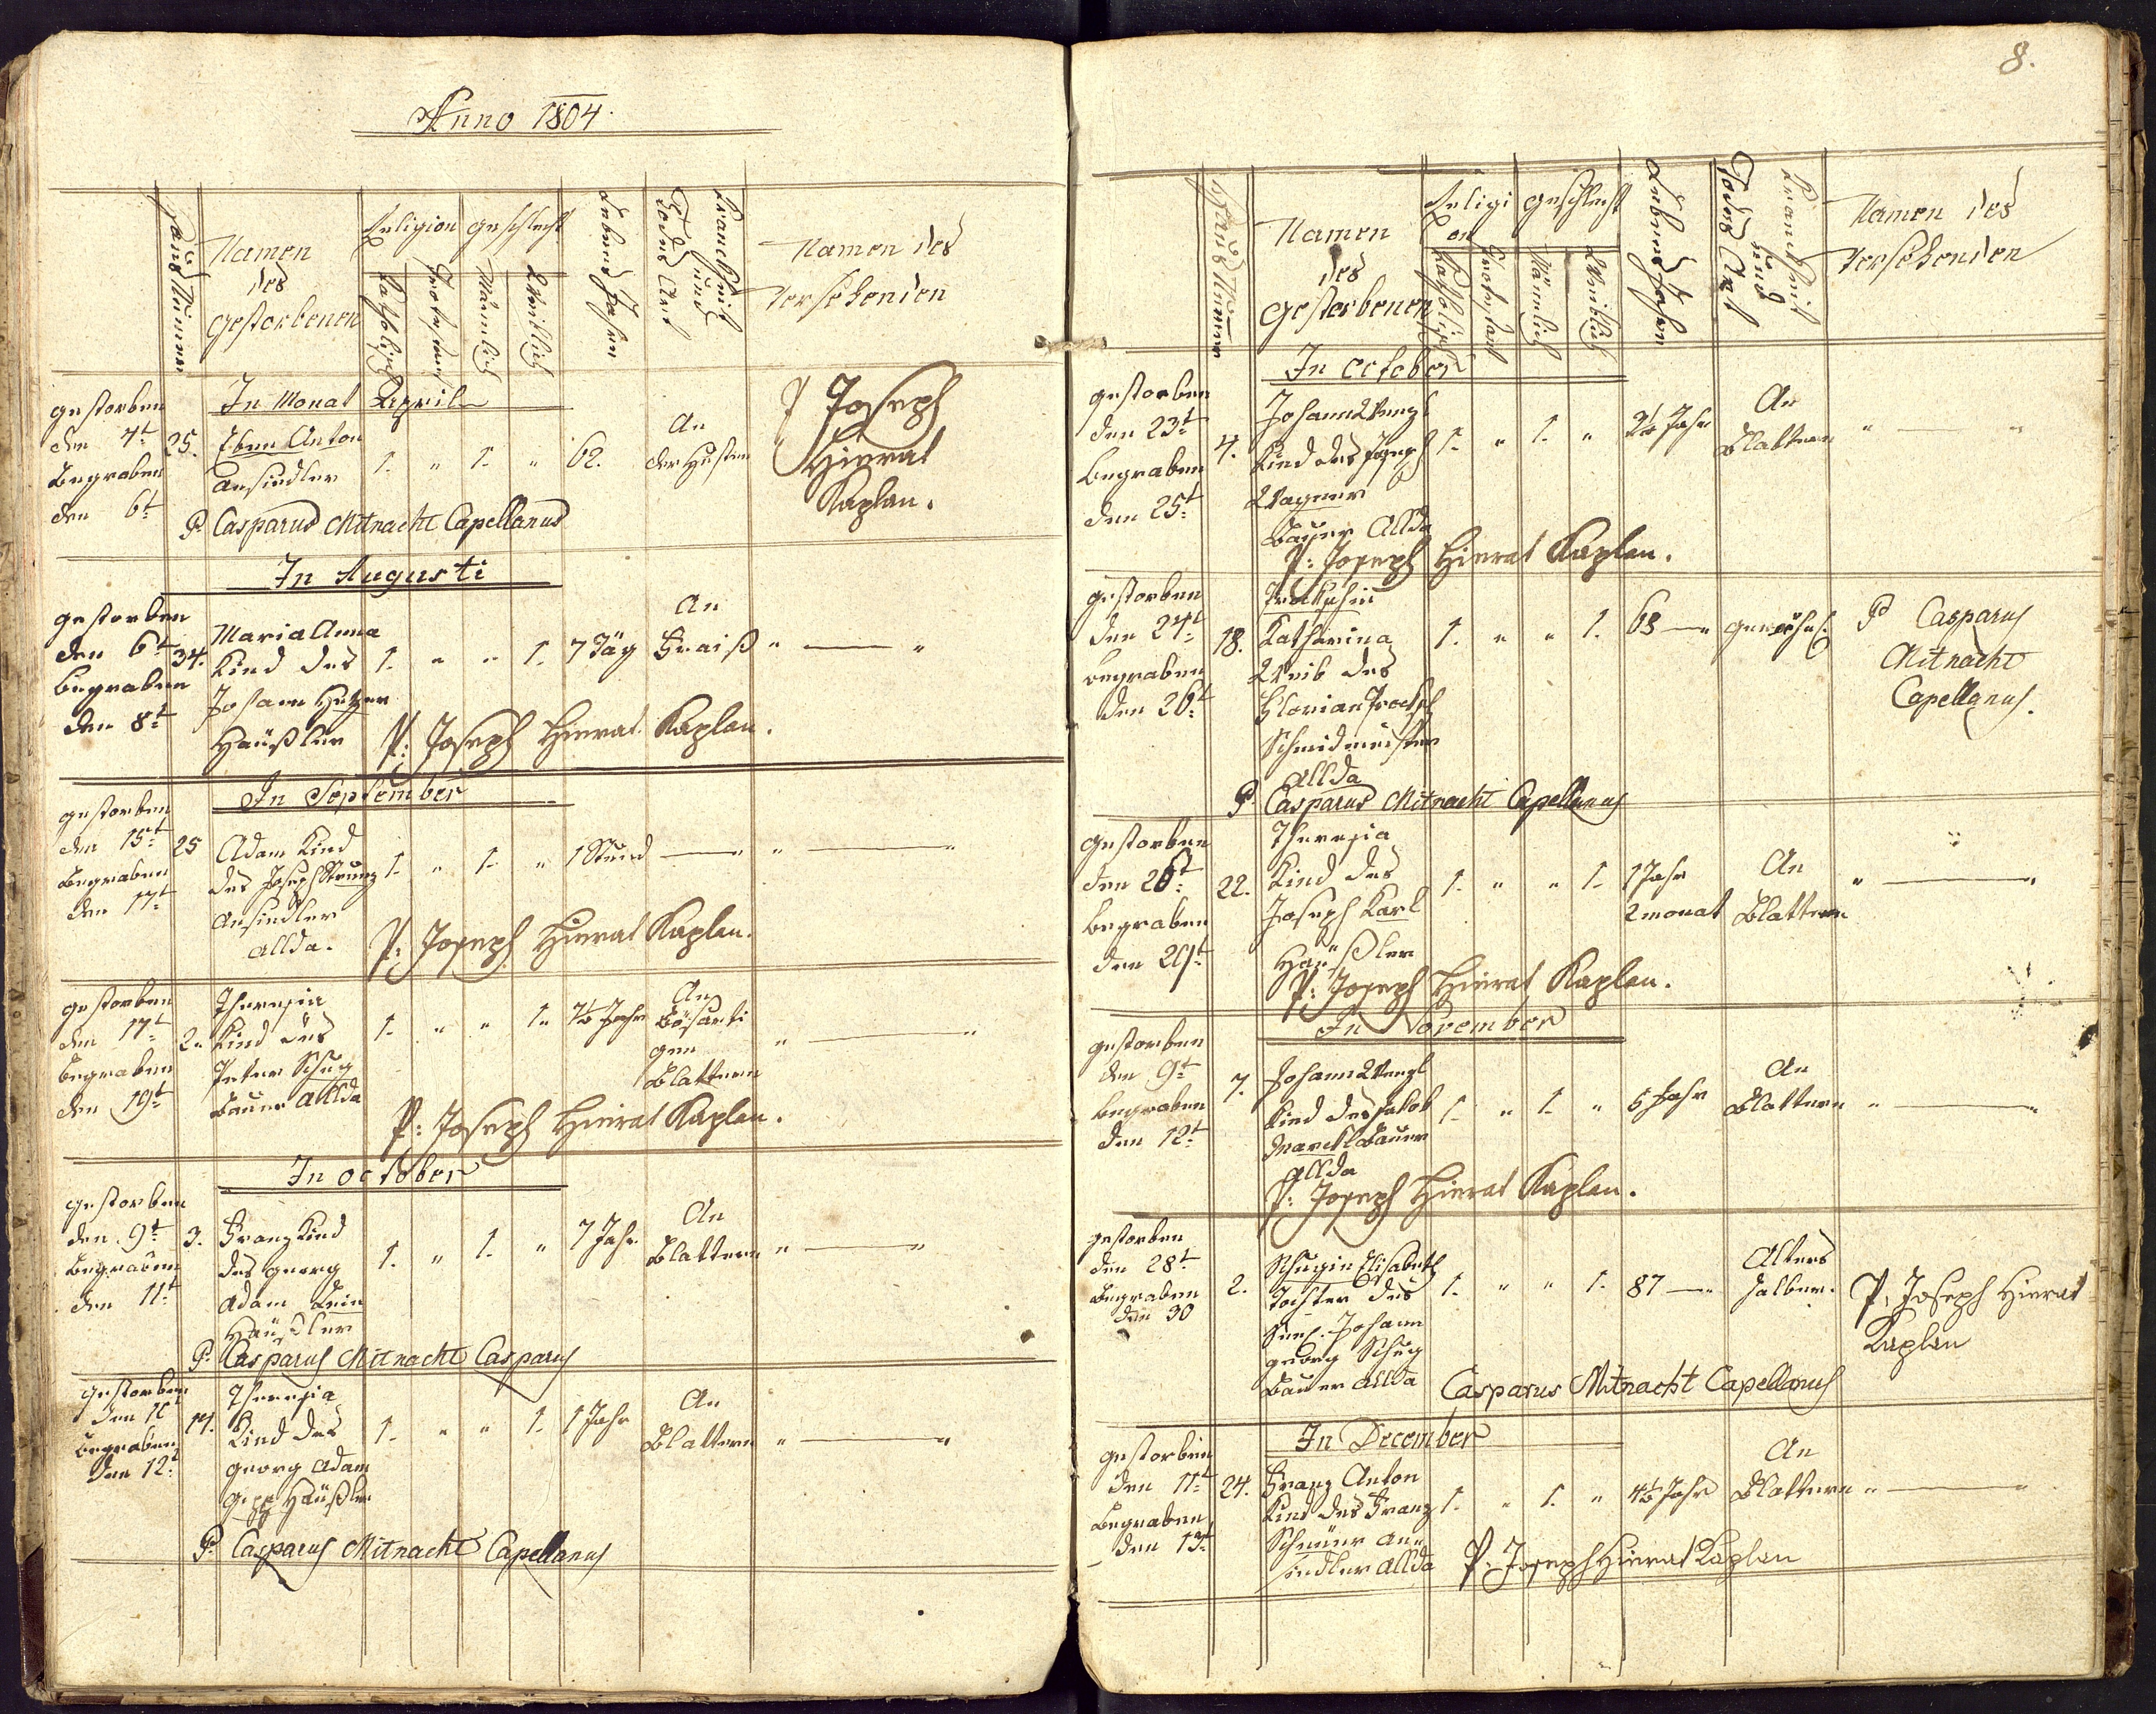 Anno 1804.
Haus Numer
Namen des gestorbenen
Religion
Katholisch
Protestant
geschlecht
Männlich
Weiblich
Lebens Jahre
Todes Art
Kranckheit und
Namen des
Versehenden
In Monat April
gestorben
den 4t
Begraben
den 6t
25.
Eben Anton
Ansiedler
1. " 1. " 62.
An
der Husten
P Joseph
Hierat
Kaplan.
P. Casparus Mitnacht Capellanus
In Augusti
gestorben
den 6t
begraben
den 8t
34.
Maria Anna
Kind des
Johann
Häußler
1. " " 1. 7 Täg
An
Fraiß " — "
P: Joseph Hierat Kaplan.
In September
gestorben
den 15t
Begraben
den 17t
25
Adam Kind
des Joseph
Ansiedler
allda.
1. " 1. " 1 Stund — " " — "
P: Joseph Hierat Kaplan.
gestorben
den 17t
begraben
den 19t
2.
Theresia
Kind des
Peter Schug
Bauer allda
1. " " 1. Jahr
An
Bösarti
gen
Blattern " — "
P: Joseph Hierat Kaplan.
In october
gestorben
den 9t
Begraben
den 11t
3.
Franz Kind
des georg
adam
Häußler
1. " 1. " 7 Jahr
An
Blattern " — "
P. Casparus Mitnacht Casparus
gestorben
den
begraben
den 12t
14.
Theresia
Kind des
georg Adam
Häußler
1. " " 1. 1 Jahr
An
Blattern " — "
P. Casparus Mitnacht Capellanus
8.
Haus Numer
Namen
des
gestorbenen
Religi
on
Katholisch
Protestant
geschlecht
Männlich
Weiblich
Lebens Jahre
Todes Art
Kranckheit und
Namen des
Versehenden
In october
gestorben
den 23t
begraben
den 25t
4.
Johann Wenzl
Kind des Joseph
Wagner
Bauer Allda
1. " 1. " 2½ Jahr
An
Blattern " — "
P: Joseph Hierat Kaplan.
gestorben
den 24t
begraben
den 26t
18.
Katharina
Weib des
Florian
Schmidmeister
Allda
1. " " 1. 63 — "
P Casparus
Mitnacht
Capellanus.
P. Casparus Mitnacht Capellanus
gestorben
den 26t
begraben
den 29t
22.
Theresia
Kind des
Joseph Karl
Häußler
1. " " 1. 1 Jahr
2 monat
An
Blattern " — "
P: Joseph Hierat Kaplan.
In November
gestorben
den 9t
begraben
den 12t
7.
Johann Wenzl
Kind des Jakob
Marckl Bauer
Allda
1. " 1. " 5 Jahr
An
Blattern " — "
P: Joseph Hierat Kaplan.
gestorben
den 28t
Begraben
den 30
2.
Schugin Elisabeth
Tochter des
Seel. Johann
georg Schug
Bauer allda
1. " " 1. 87 — "
Alters
halber.
P. Joseph Hierat
Kaplan
Casparus Mitnacht Capellanus
In December
gestorben
den 11t
Begraben
den 13t
24.
Franz Anton
Kind des Franz
An
siedler allda
1. " 1. " 4½ Jahr
An
Blattern " — "
P. Joseph Hierat Kaplan